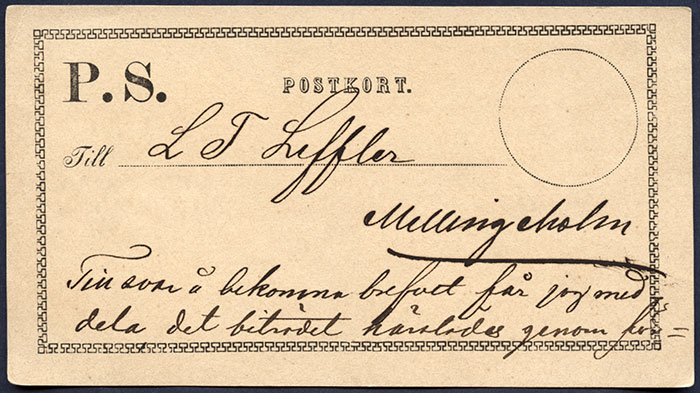 P. S.
POSTKORT.
Till L T Leffler
Mellingeholm
Till svar å bekomna brefvet får jag med
dela, det biträdet härstädes genom för=